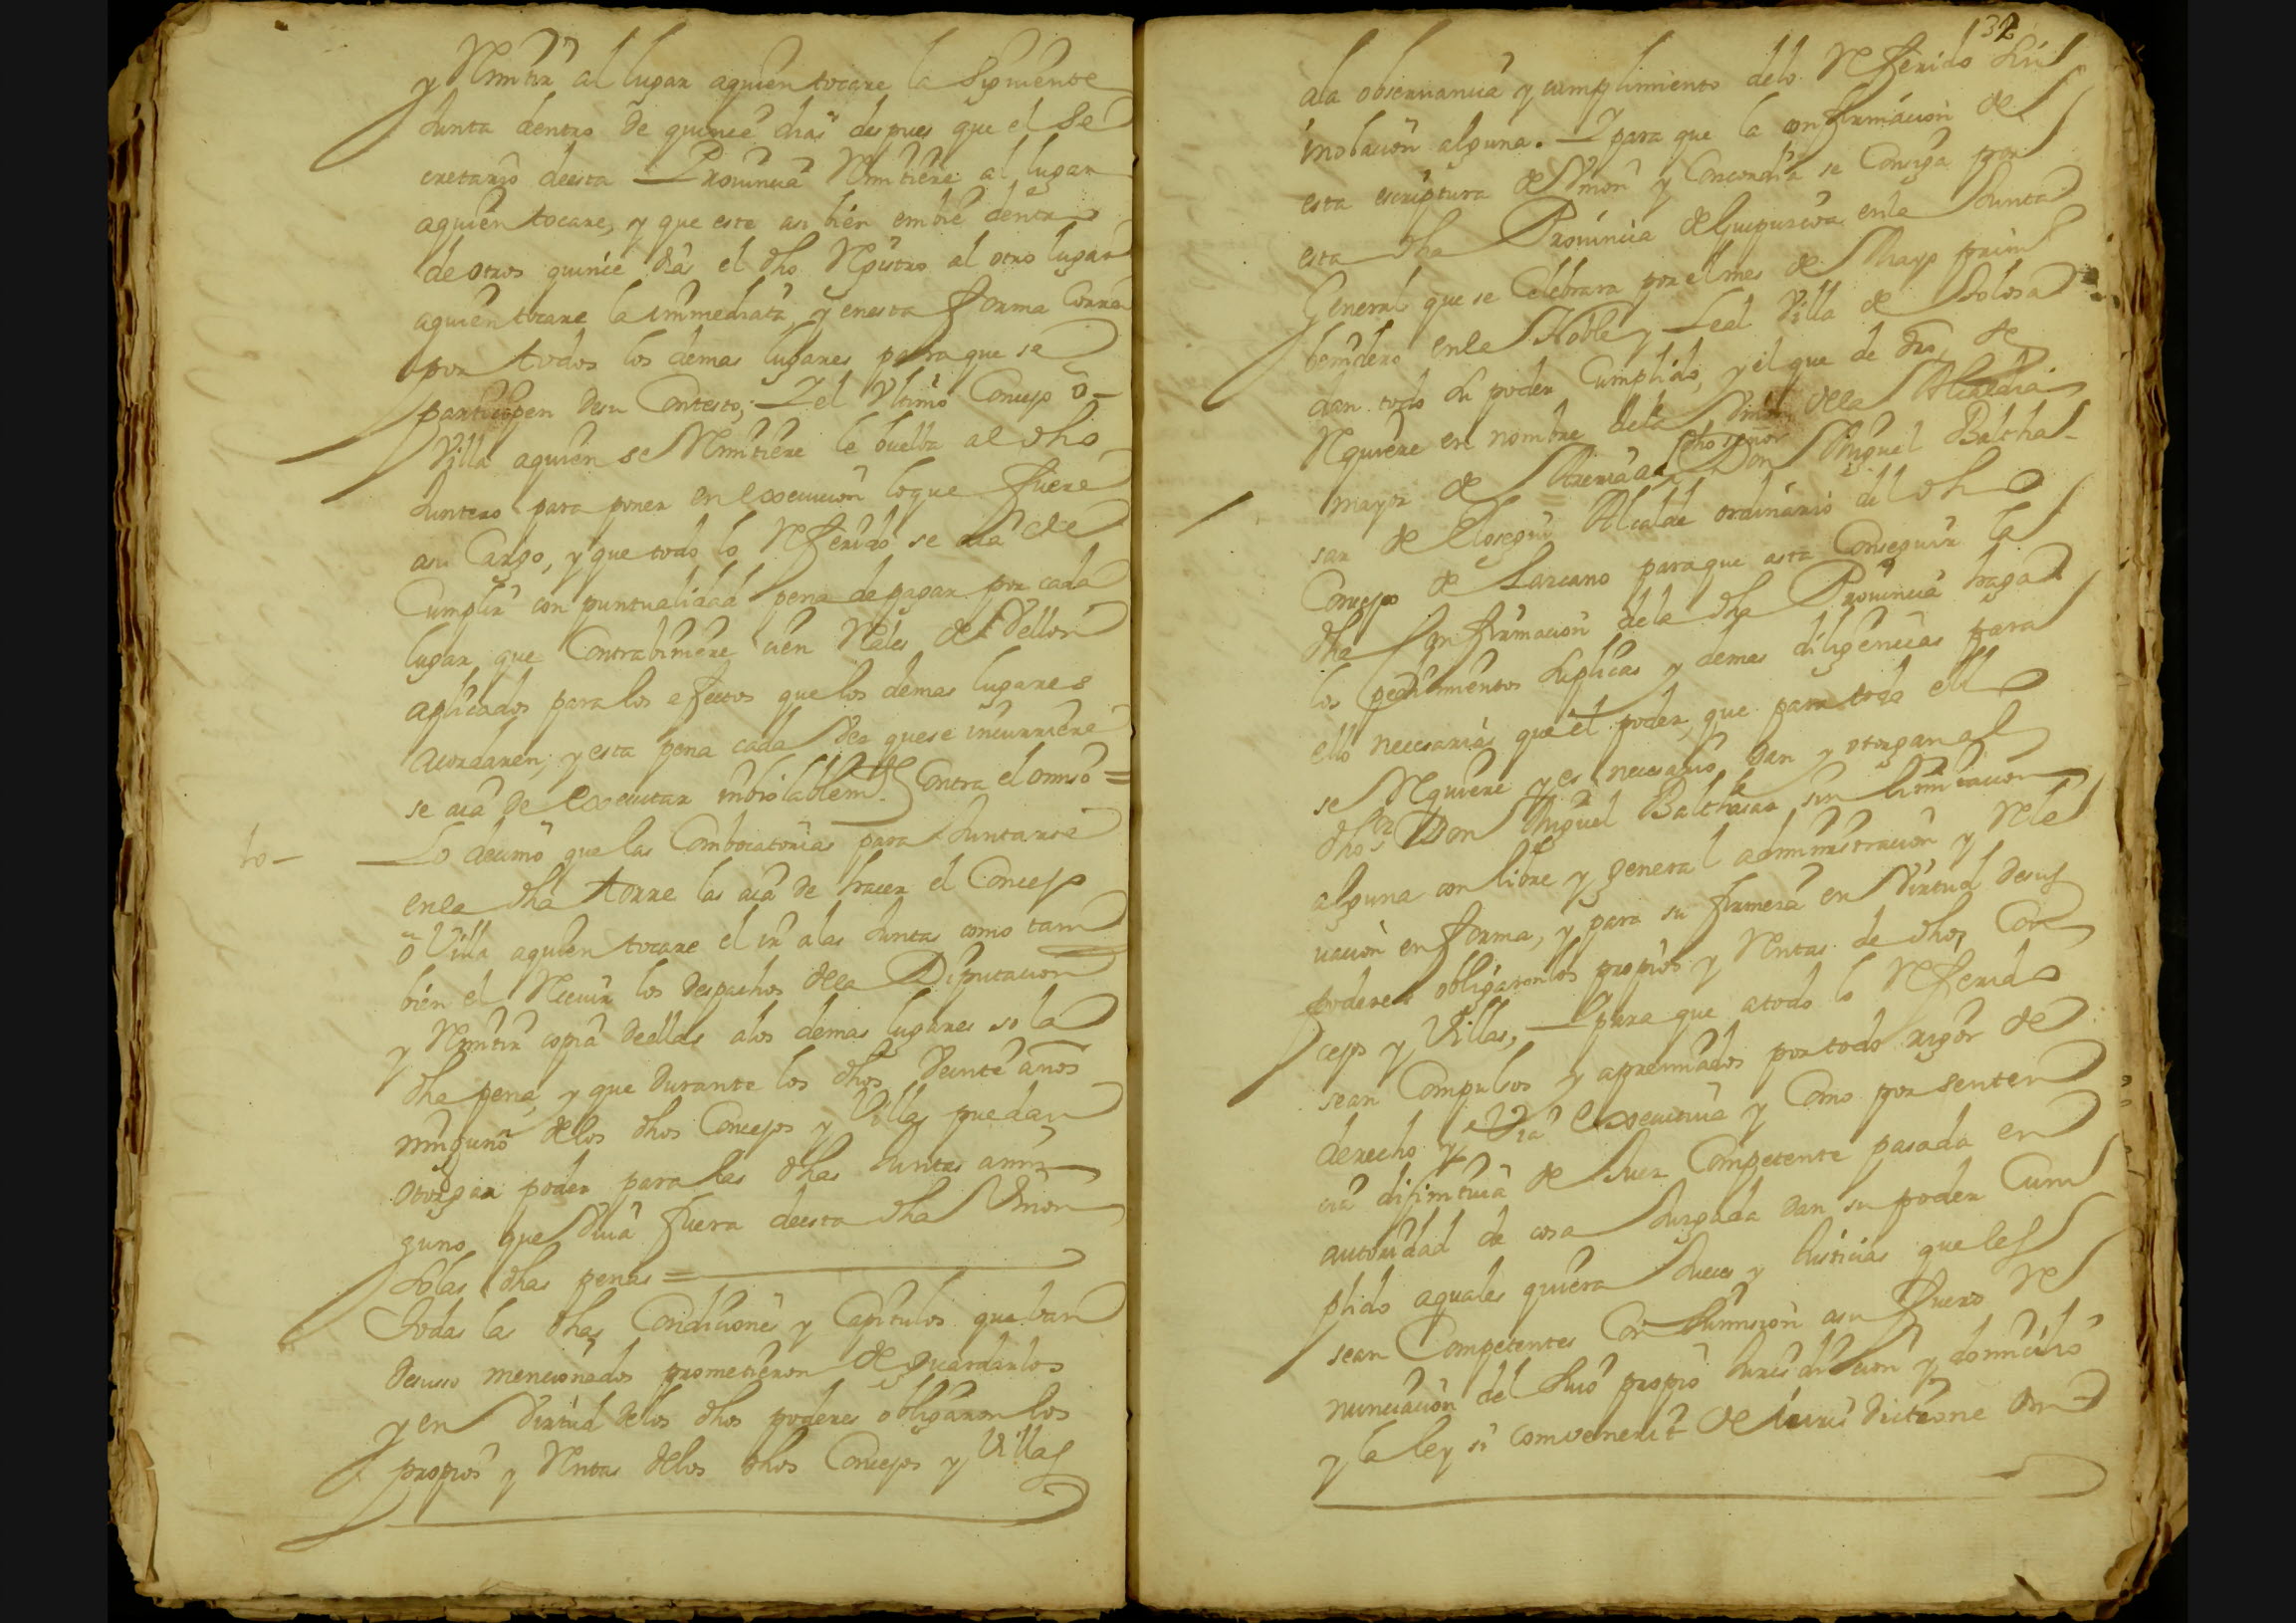 y Remitir al lugar aquien tocare la Siguiente
Junta dentro de quince dias despues que el Se
cretario deesta Prouincia Remitiere al lugar
aquien tocare, y que este asi bien embie dentro
de otros quince dias el dho Registro al otro lugar
aquien tocare la immediata, y enesta forma Corra
por todos los demas lugares para que se
participen desu Contesto, Y el Vltimo Concejo ô
Villa aquien se Remitiere le buelba al dho
Juntero para poner en execucion loque fuere
asu Cargo, y que todo lo Referido se aia de
Cumplir con puntualidad pena de pagar por cada
lugar que Contrabiniere cien Reales de Vellon
aplicados para los efectos que los demas lugares
acordaren, y esta pena cada Vez quese incurriere
se aia de executar inbiolablemte. Contra el omiso =
10 – Lo decimo que las Combocatorias para Juntarse
enla dha torre las aia de hacer el Concejo
ô Villa aquien tocare el ir alas Juntas como tam
bien el Reciuir los despachos dela Diputacion
y Remitir copia deellas alos demas lugares so la
dha pena, y que durante los dhos Veinte años
ninguno delos dhos Concejos y Villas puedan
otorgar poder para las dhas Juntas anin
guno que Viua fuera deesta dha Vnion
Solas dhas penas =
Todas las dhas Condiciones y Capitulos que ban
desuso mencionados prometieron de guardarlos
y en Virtud delos dhos poderes obligaron los
propios y Rentas delos dhos Concejos y Villas
32
ala obseruancia y cumplimiento delo Referido Sin
inobacion alguna. Y para que la confirmacion de
esta escriptura de Vnion y Concordia se Consiga por
esta dha Prouincia de Guipuzcoa enla Junta
General que se Celebrara por el mes de Mayo primo
benidero enla Noble y Leal Villa de Tolosa
dan todo Su poder Cumplido, y el que de dro, se
Requiere en nombre dela Vnion dela Alcaldia
mayor de Areria al dho señor Don Miguel Baltha-
sar de Elosegui Alcalde ordinario del dho
Concejo de Lazcano paraque asta Conseguir la
dha Confirmacion dela dha Prouincia haga
los pedimentos Suplicas y demas diligencias para
ello necesarias que el poder, que para todo ello
se Requiere y es necesario dan y otorgan al
dho Sr Don Miguel Balthasar sin limitacion
alguna con libre y general administracion y Rele
uacion en forma, y para su firmeza en Virtud desus
poderes obligaron los propios y Rentas de dhos Con
cejos y Villas, Y para que atodo lo Referido
sean Compulsos y apremiados por todo rigor de
derecho y Via executiua y Como por senten
cia difinitiua de Juez Competente pasada en
autoridad de cosa Juzgada dan su poder Cum
plido aquales quiera Jueces y Justicias queles
sean Competentes Con Sumision asu fuero Re
nunciacion del Suio propio Jurisdicion y domicilio
y la ley si convenerit de Jurisdictione Om